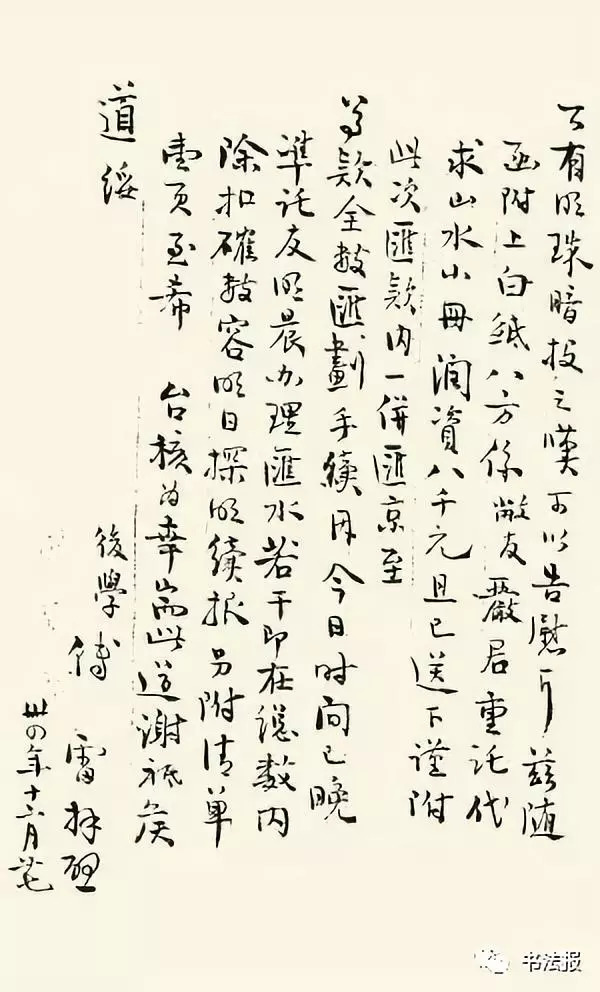 不有明珠暗投之嘆可以告慰耳茲隨
函附上白紙八方係敝友嚴君重託代
求山水小冊潤資八千元且已送下謹附
此次匯款內一併匯京至
尊款全數匯劃手續因今日時間已晚
準託友明晨办理匯水若干即在總數內
除扣確數容明日探明續报另附清單
壹頁至希 台核為幸耑此道謝祗候
道綏
後學傅雷拜啓
卅四年十二月廿七
书法报